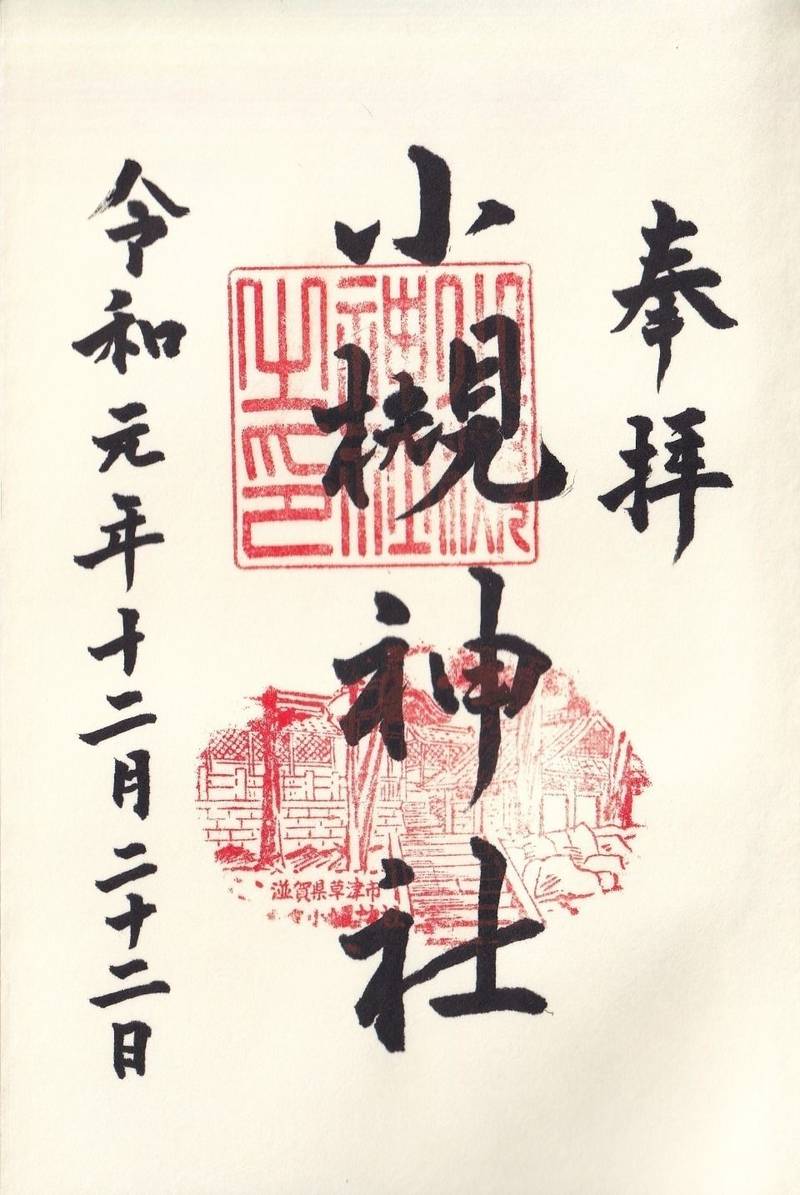 奉拝
小槻神社
令和元年十二月二十二日
滋賀県草津市